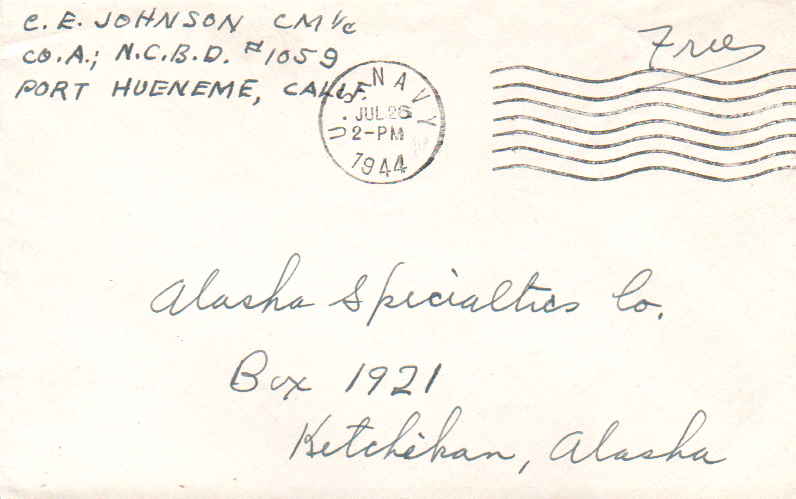 C. E. JOHNSON CM 1/c
CO. A.; N.C.B.D. #1059
PORT HUENEME, CALIF.
Free
U.S. NAVY
JUL 26
2-PM
1944
Alaska Specialties Co.
Box 1921
Ketchikan, Alaska